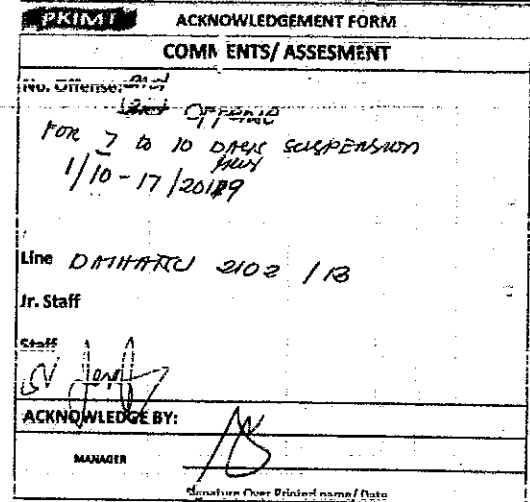 PKIMT ACKNOWLEDGEMENT FORM
COMMENTS/ ASSESMENT
No. Offense: 2nd
OFFENSE
FOR 7 to 10 DAYS SUSPENSION
1/10 - 17 /2019
Line DAIHATSU 2102 / B
Jr. Staff
Staff
ACKNOWLEDGE BY:
MANAGER
Signature Over Printed name/ Date